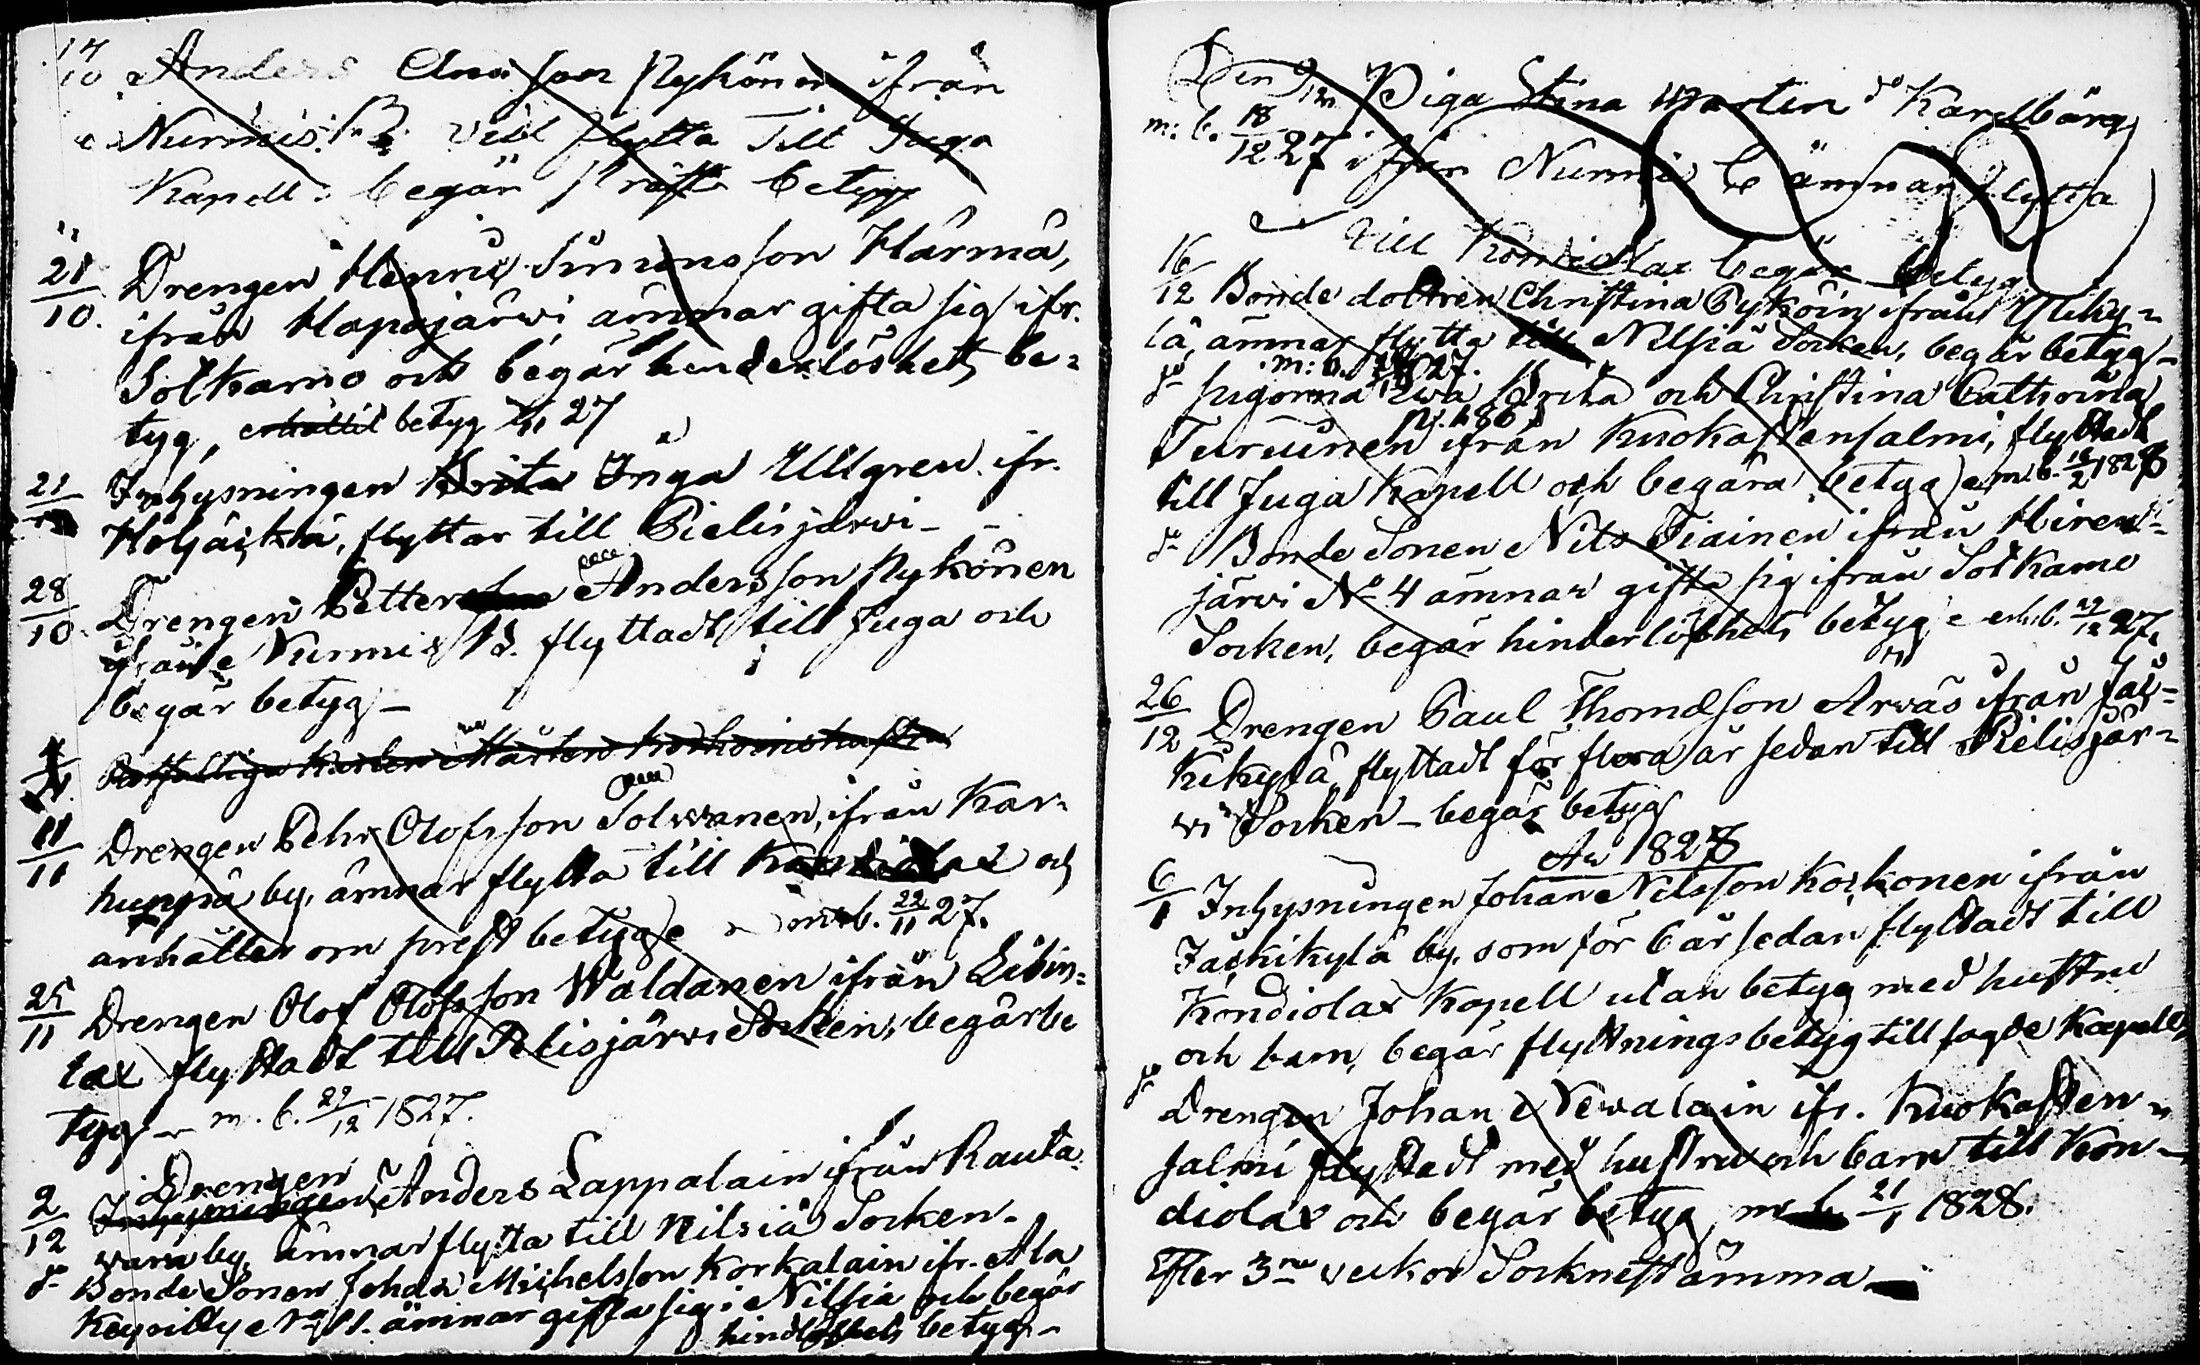 14/10 Anders Andersson Nykönen ifrån
Nurmis B. vill flytta till Juga
Kapell: begär Präste betyg
21/10. Drengen Henric Simonsson Härmä,
ifrån Hapajärwi ämnar gifta sig ifr.
Sotkamo och begär hinderlöshets be=
tyg, erhållit betyg 27
21 Inhysningen Brita Inga Ullgren ifr.
Höljäkkä, flyttar till Pielisjärwi –
28/10 Drengen Petter Andersson Nykönen
ifrån Nurmis B. flyttadt till Juga och
begär betyg –
Rotfattiga Karlen Mårten Korhoins hustru
11/11 Drengen Pehr Olofsson Solwanen, ifrån Kar=
huppä by, ämnar flytta till Kondiolax och
anhåller om prest betyg m. b. 22/11 27.
25/11 Drengen Olof Olofsson Waldanen ifrån Libin=
lax flyttadt till Pelisjärwi Socken, begär be
tyg – m. b. 29/12 1827.
Drengen
2/12 Inhysningen Anders Lappalain ifrån Rauta
wara by, ämnar flytta till Nilsiä Socken –
do Bonde Sonen Johan Michelsson Korkalain ifr. Ala
Keyritty No 11. ämnar gifta sig i Nilsiä och begär
hindlöshets betyg –
Den 9/12 Piga Stina Marten do Karllbärg
m: b. 18/12 27 ifrån Nurmis B ämnar flytta
till Kondiolax begär betyg
16/12 Bonde dottren Christina Pyköin ifrån Yliky=
lä, ämnar flytta till Nilsiä Socken, begär betyg –
m: b. 27.
do pigorna Ewa Brita och Christina Cathrina
Turunen ifrån Kuokastensalmi, flyttadt
till Juga Kapell och begära betyg m. b. 1828
do Bonde Sonen Nils Tiainen ifrån Hiren=
järvi No 4 ämnar gifta sig ifrån Sotkamo
Socken, begär hinderlöshets betyg erh. b. 27.
26/12 Drengen Paul Thomasson Arwas ifrån Jäs=
kikylä, flyttadt för flera år sedan till Pielisjär=
wi Socken – begär betyg
An 1828
6/1 Inhysningen Johan Nilsson Korkonen ifrån
Jäskikylä by, som för 6 år sedan flyttadt till
Kondiolax Kapell utan betyg med hustru
och barn, begär flyttnings betyg till sagde Kapell,
do Drengen Johan Newalain ifr. Kuokasten=
salmi flyttadt med hustru och barn till Kon=
diolax och begär betyg, m b 21/1 1828.
Efter 3ne veckor Sockne stämma –